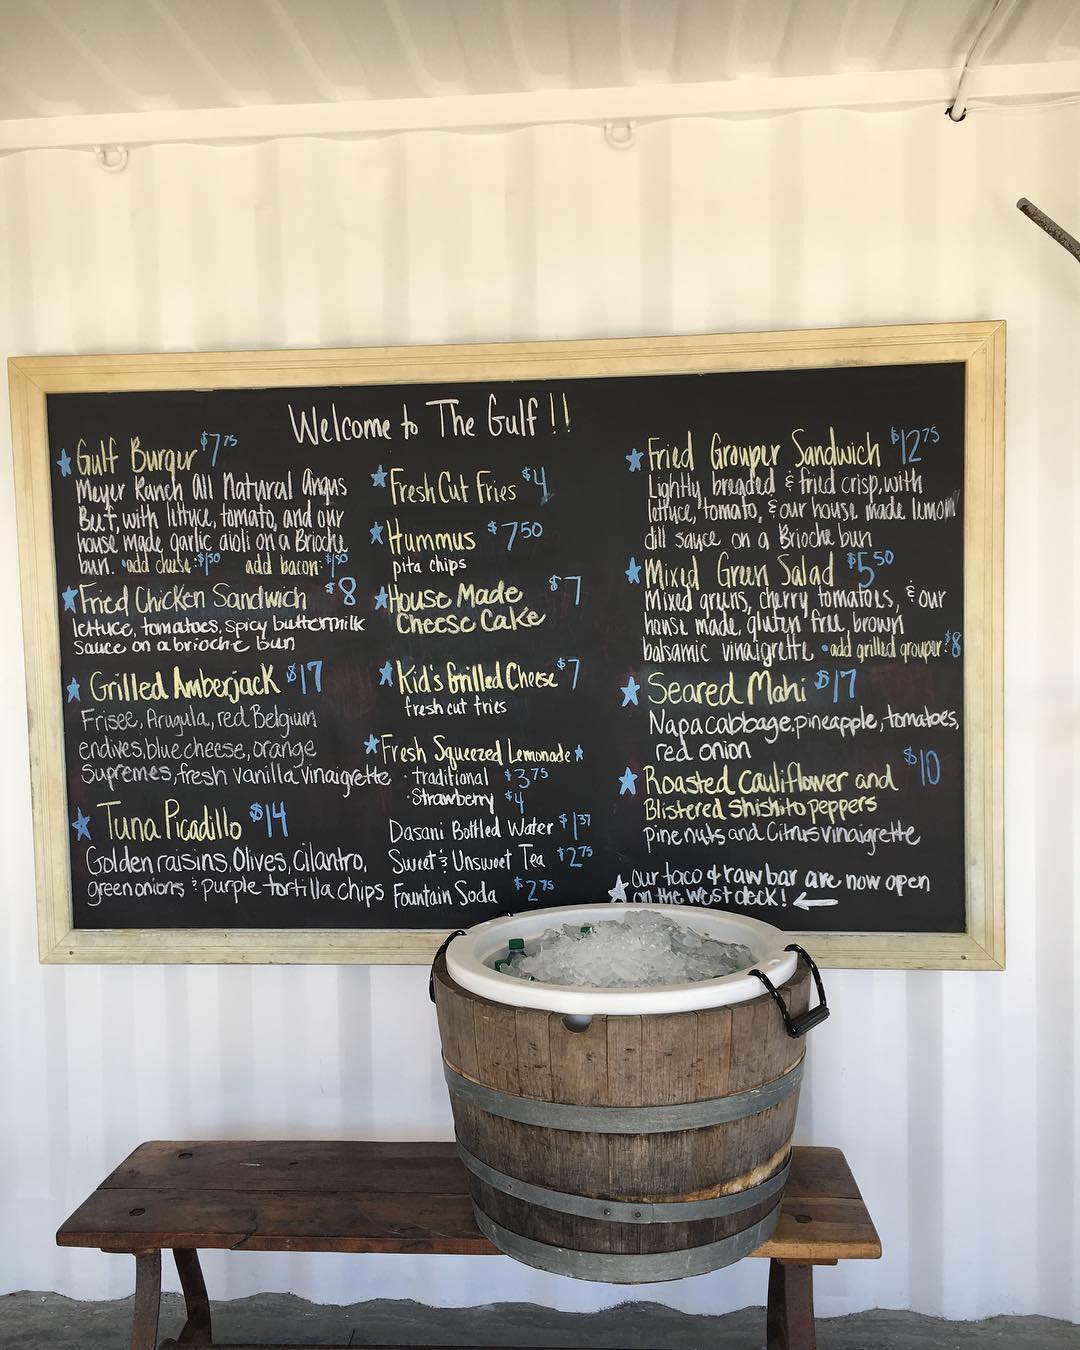 Welcome to The Gulf!!
Gulf Burger $7.75
Meyer Ranch All Natural Angus
Beef, with lettuce, tomato, and our
house made garlic aioli on a Brioche
bun. •add cheese: $1.50 add bacon: $1.50
Fried Chicken Sandwich $8
lettuce, tomatoes, spicy buttermilk
sauce on a brioche bun
Grilled Amberjack $17
Frisee, Arugula, red Belgium
endives, blue cheese, orange
Supremes, fresh vanilla vinaigrette
Tuna Picadillo $14
Golden raisins, Olives, cilantro,
green onions & purple tortilla chips
Fresh Cut Fries $4
Hummus $7.50
pita chips
House Made $7
Cheese Cake
Kid's Grilled Cheese $7
fresh cut fries
Fresh Squeezed Lemonade
• traditional $3.75
• Strawberry $4
Dasani Bottled Water $1.37
Sweet & Unsweet Tea $2.75
Fountain Soda $2.75
Fried Grouper Sandwich $12.75
Lightly breaded & fried crisp, with
lettuce, tomato, & our house made lemon
dill sauce on a Brioche bun
Mixed Green Salad $5.50
Mixed greens, cherry tomatoes, & our
house made, gluten free, brown
balsamic vinaigrette •add grilled grouper: $8
Seared Mahi $17
Napa cabbage, pineapple, tomatoes,
red onion
Roasted Cauliflower and $10
Blistered Shishito peppers
pine nuts and Citrus vinaigrette
our taco & raw bar are now open
on the west deck! ←